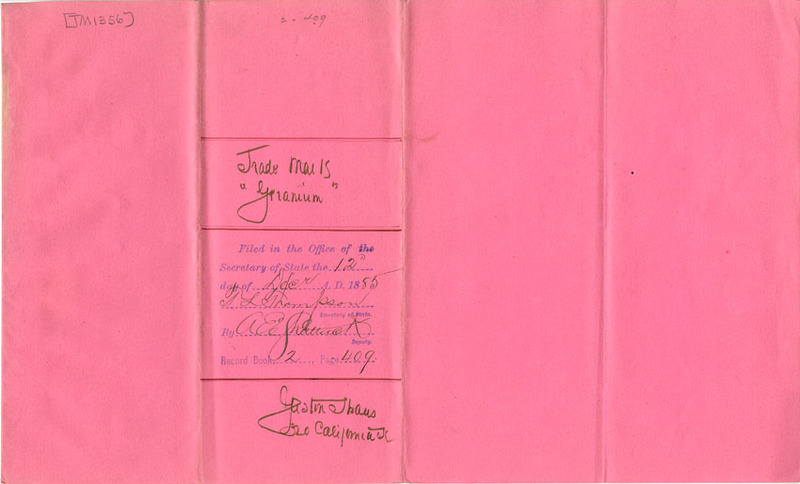 [TM1356]
2-409
Trade Mark
"Geranium"
Filed in the Office of the
Secretary of State the 12th
day of Decr A. D. 1885
Thompson
Secretary of State.
By A E
Deputy.
Record Book 2 Page 409.
Gaston Straus
320 California St